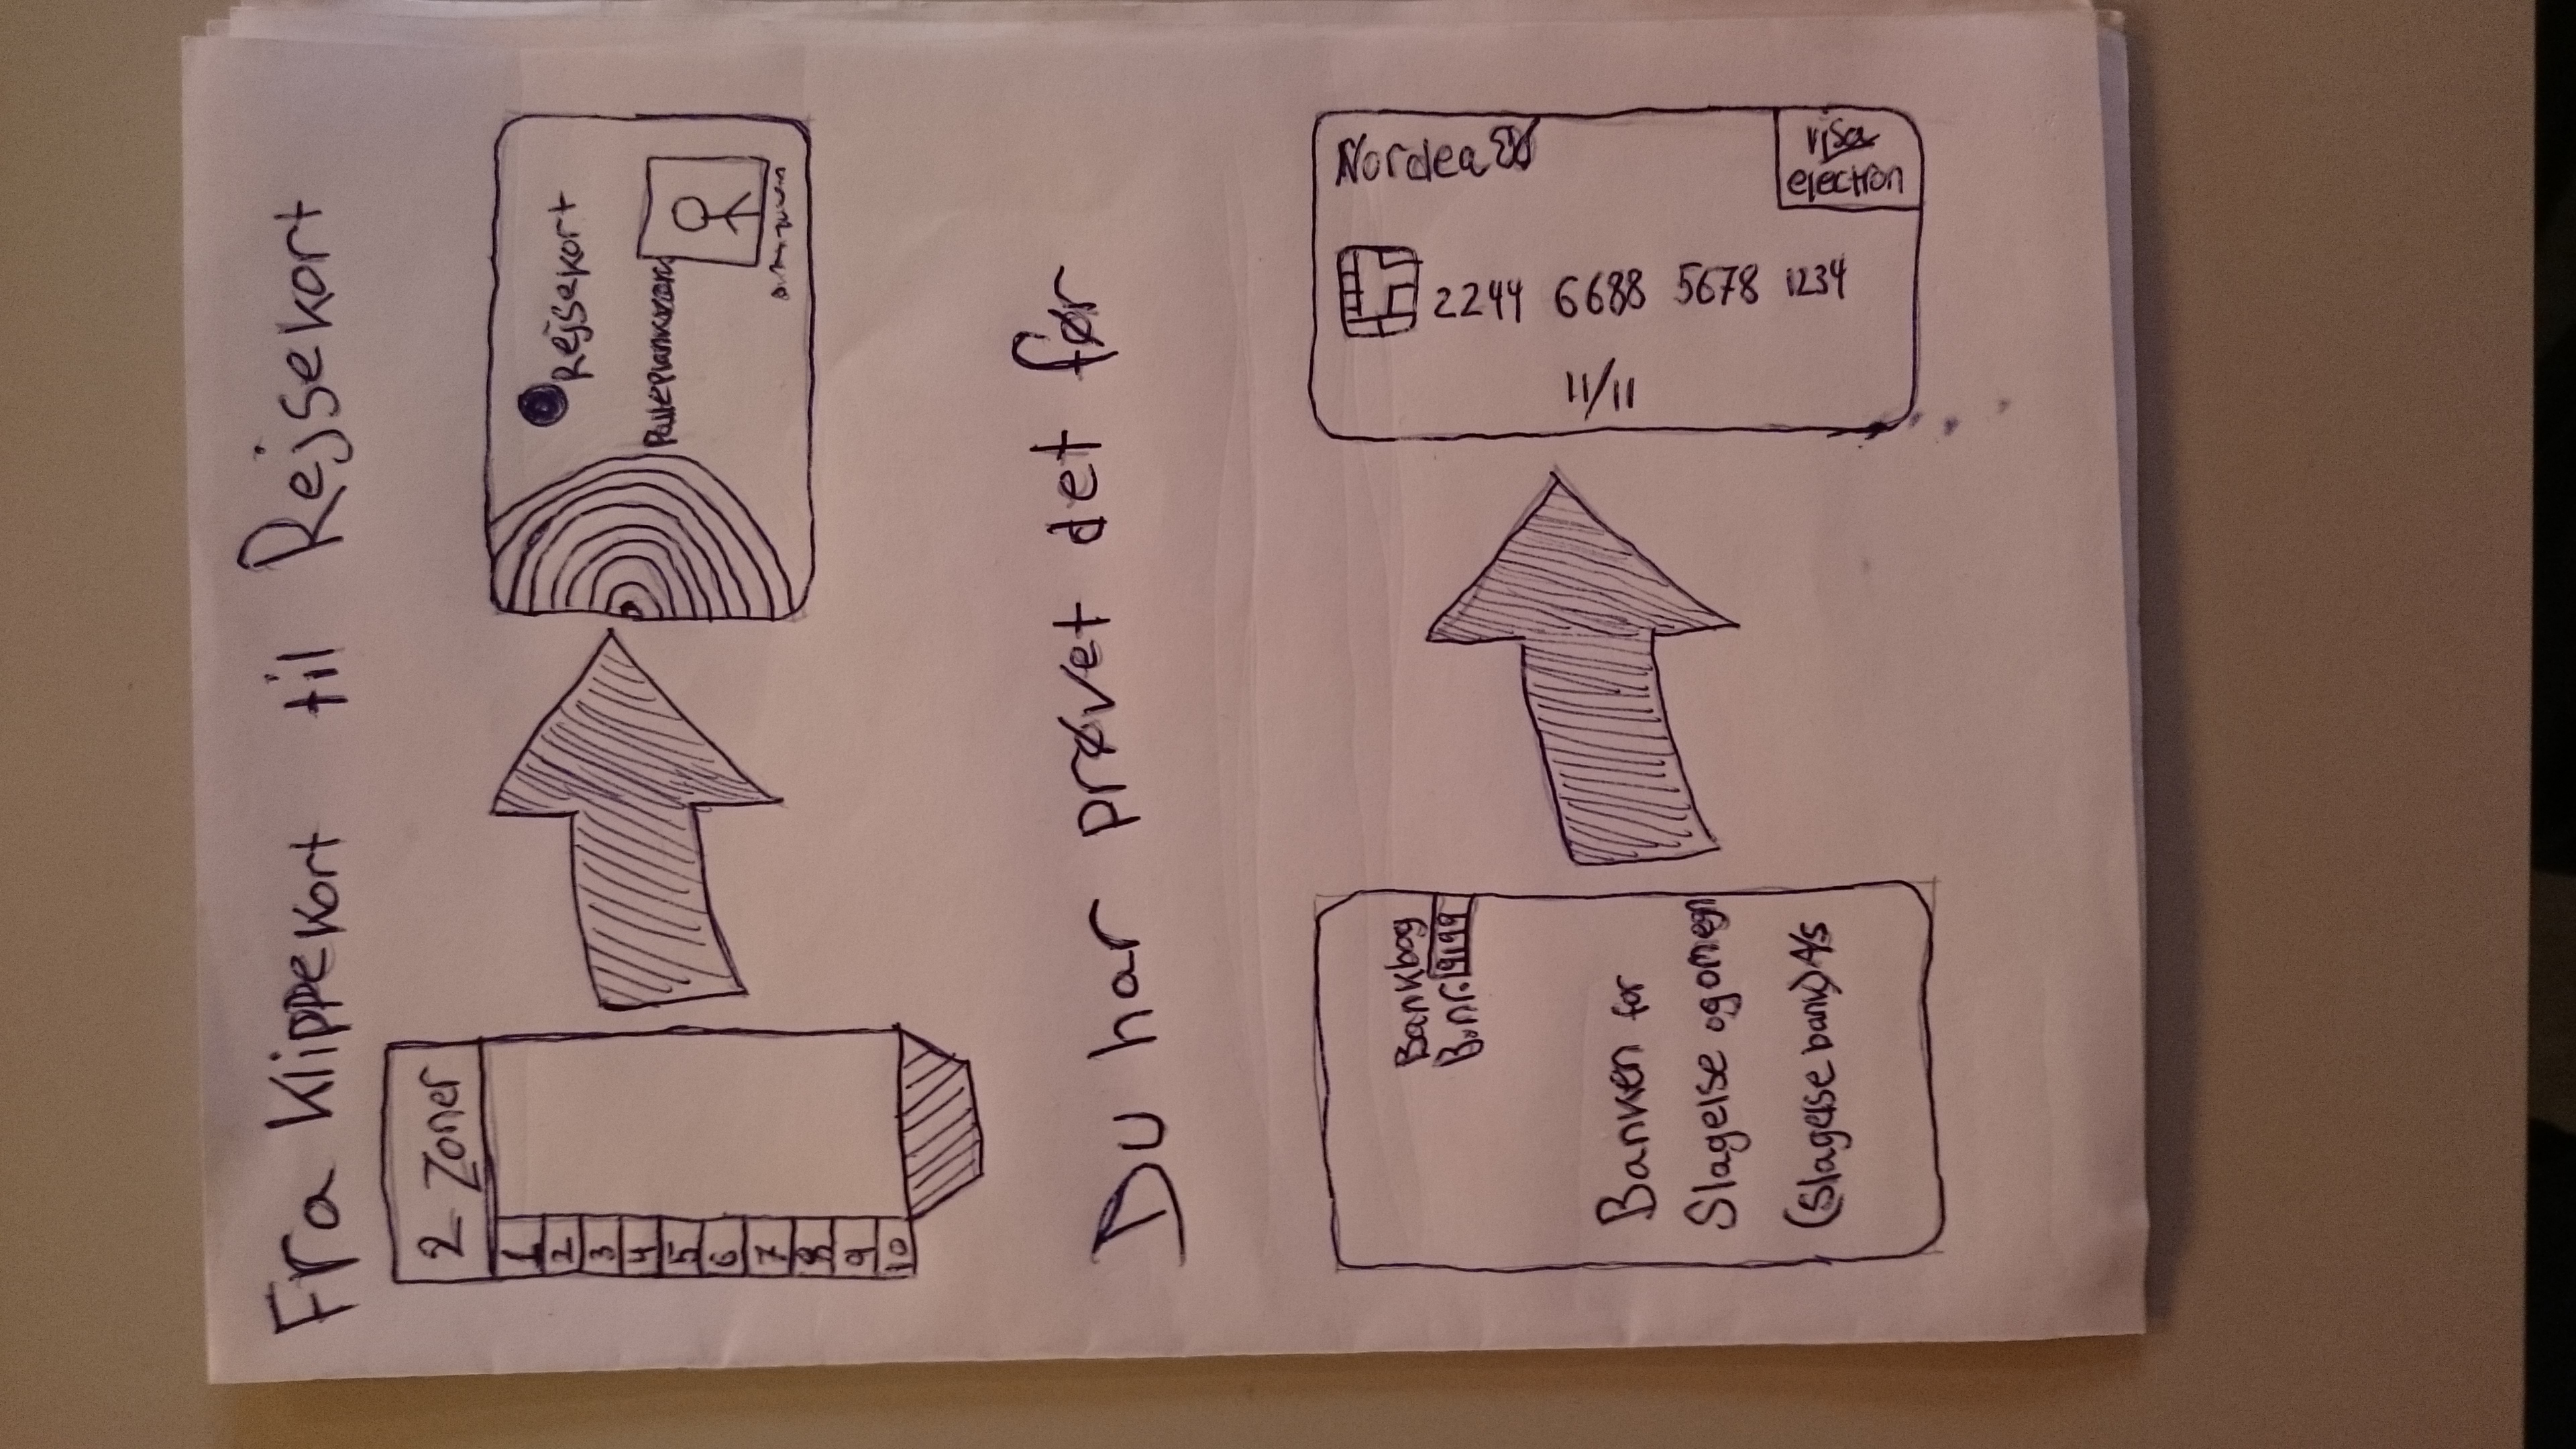 Fra Klippekort til Rejsekort
2 Zoner
1
2
3
4
5
6
7
8
9
10
Rejsekort
Du har prøvet det før
Bankbog
B.nr. 9199
Banken for
Slagelse og omegn
(Slagelse bank) A/S
Nordea
2244 6688 5678 1234
11/11
visa
electron